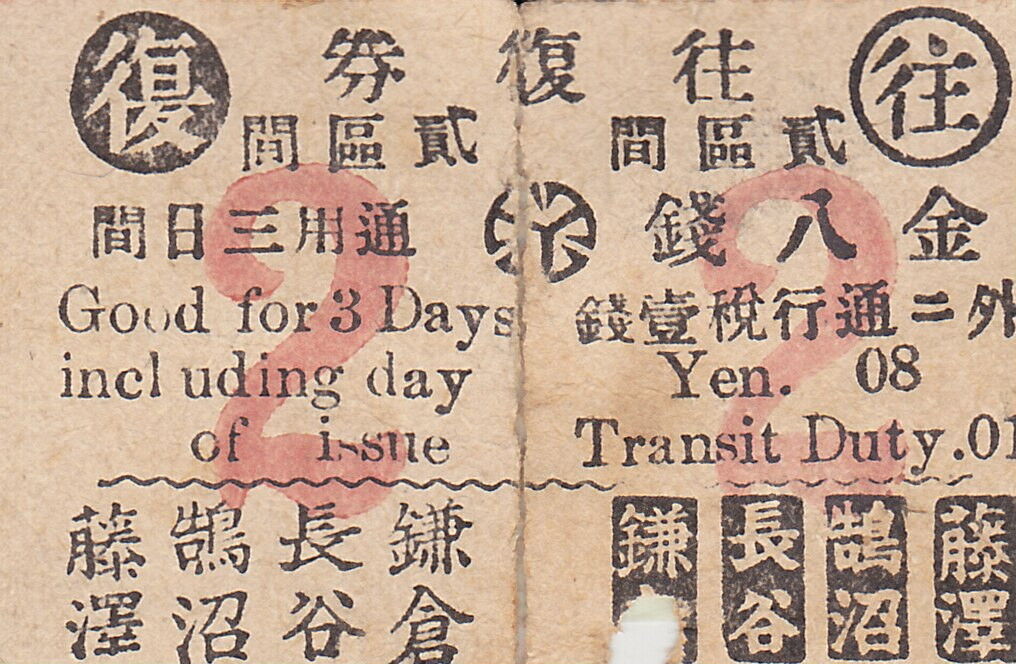 往
往復券
復
貳區間
金八錢
外ニ通行稅壹錢
Yen. 08
Transit Duty .01
藤澤
鵠沼
長谷
鎌
2
貳區間
通用三日間
Good for 3 Days
including day
of issue
鎌倉
長谷
鵠沼
藤澤
2